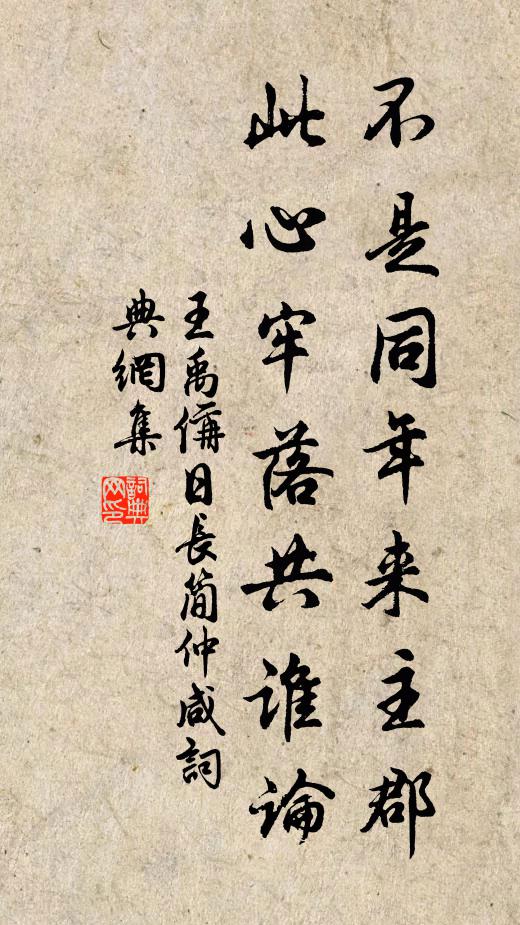 不是同年来主郡
此心牢落共谁論
王禹偁日長简仲咸詞
典網集
詞典网印